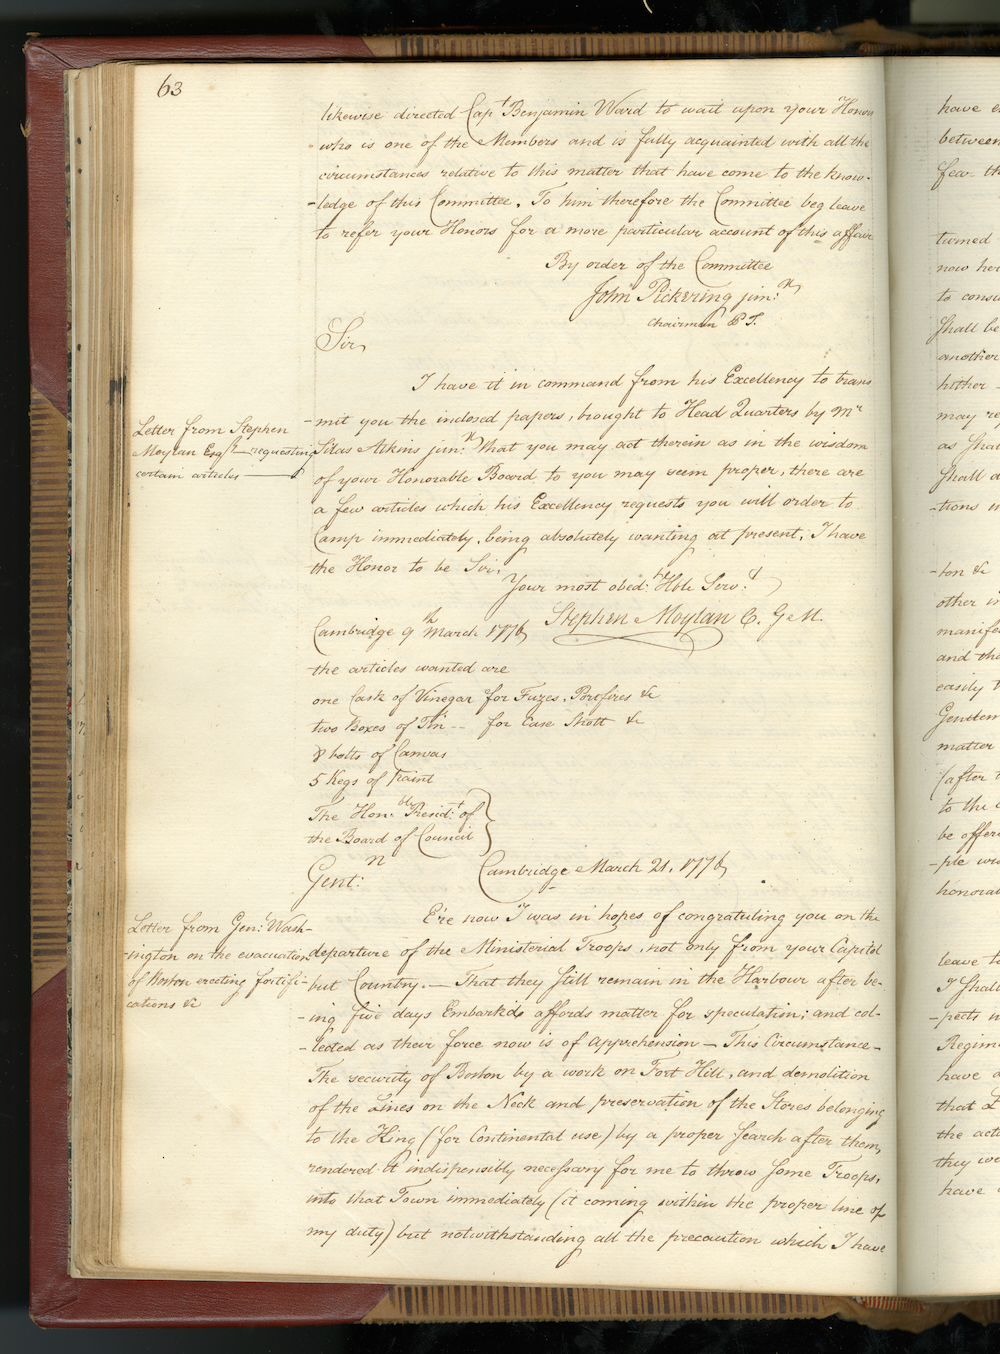 63
likewise directed Capt Benjamin Ward to wait upon your Honors
who is one of the Members and is fully acquainted with all the
circumstances relative to this matter that have come to the know-
-ledge of this Committee. To him therefore the Committee beg leave
to refer your Honors for a more particular account of this affair
By order of the Committee
John Pickering junr
Chairman P T.
Sir,
I have it in command from his Excellency to trans
-mit you the inclosed papers, brought to Head Quarters by Mr
Silas Atkins junr that you may act therein as in the wisdom
of your Honorable Board to you may seem proper, there are
a few articles which his Excellency requests you will order to
Camp immediately, being absolutely wanting at present, I have
the Honor to be Sir,
Letter from Stephen
Moylan Esqr requesting
certain articles
Your most obedt Hble Servt
Stephen Moylan C. G M.
Cambridge 9th March 1776
the articles wanted are
one Cask of Vinegar for Fuzes, Portfires &c
two Boxes of Tin -- for Case Shott &c
8 bolts of Canvas
5 Kegs of paint
The Honble Presidt of
the Board of Council
Gentn
Cambridge March 21, 1776
Letter from Genl Wash-
-ington on the evacuation
of Boston erecting fortifi-
cations &c
E're now I was in hopes of congratuling you on the
departure of the Ministerial Troops, not only from your Capitol
but Country. — That they still remain in the Harbour after be-
-ing five days Embarkds affords matter for speculation; and col-
-lected as their force now is of apprehension — This Circumstance —
The security of Boston by a work on Fort Hill, and demolition
of the Lines on the Neck and preservation of the Stores belonging
to the King (for Continental use) by a proper search after them,
rendered it indispensibly necessary for me to throw some Troops,
into that Town immediately (it coming within the proper line of
my duty) but notwithstanding all the precaution which I have
have
between
few th
turned
now her
to consi
shall be
another
hither -
may re
as shal
shall a
-tions
-ton &c
other in
manifes
and tha
easily t
Gentlem
matter
(after
to the
be offer
-ple
honorab
leave to
I shall
-pects
Regim
have a
that
the act
they
have